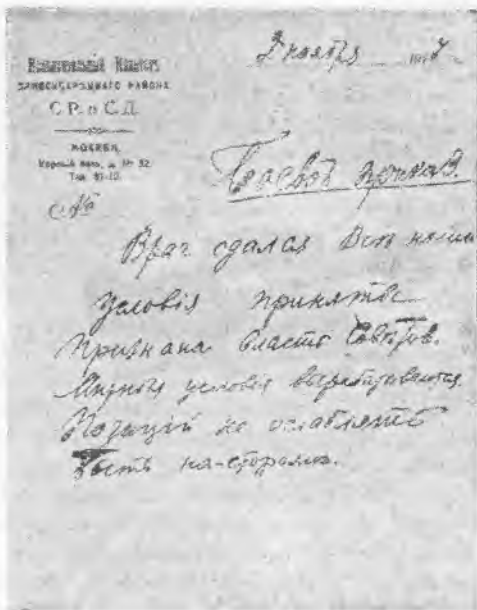 2 ноября 1917
Исполнительный Комитет
ЗАМОСКВОРЕЦКАГО РАЙОНА
С. Р. и С. Д.
МОСКВА.
д. № 32.
Тел.
Боевой приказ.
Враг сдался Все наши
условія приняты
Признана власть Советов.
Мирныя условія вырабатываются.
Позицій не ослаблять
Быть на-стороже.